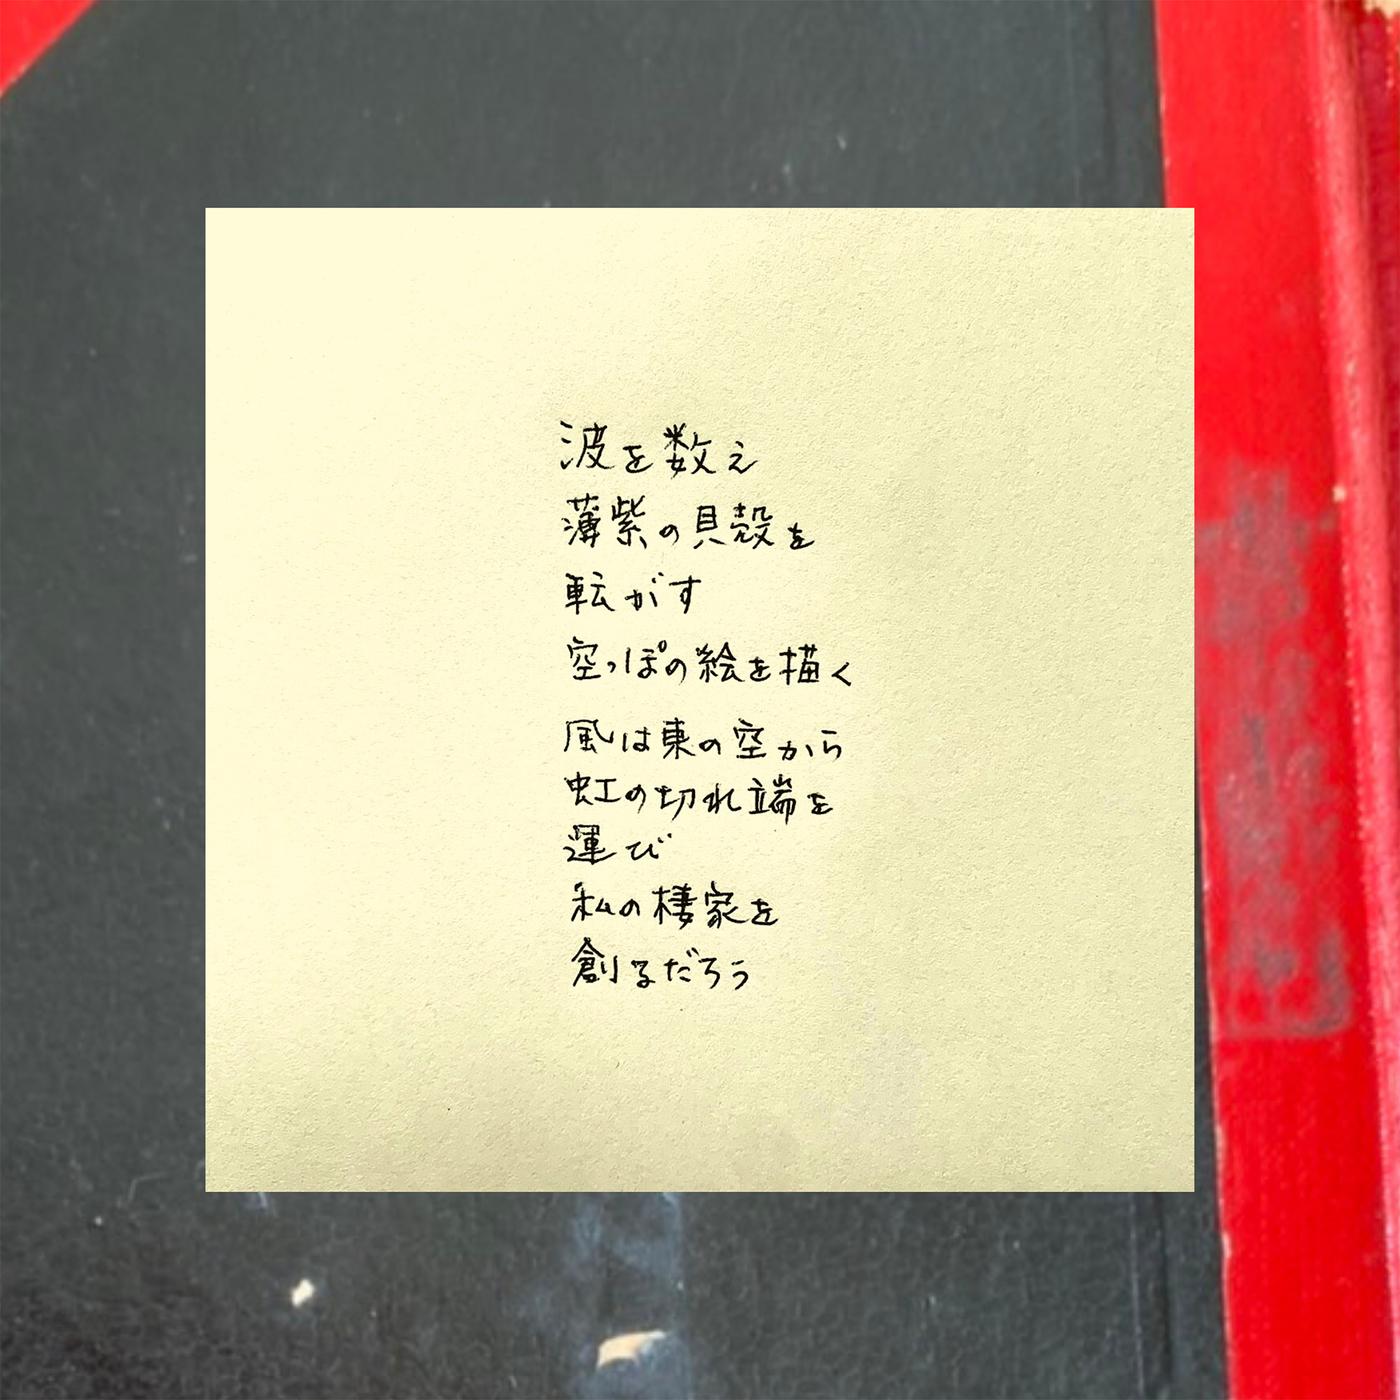 波を数え
薄紫の貝殻を
転がす
空っぽの絵を描く
風は東の空から
虹の切れ端を
運び
私の棲家を
創るだろう